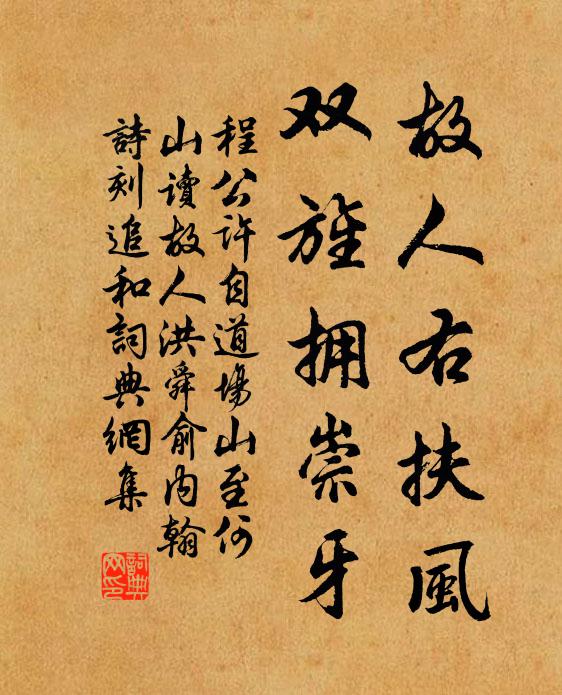 故人右扶風
双旌拥崇牙
程公許自道場山至何
山讀故人洪舜俞内翰
詩刻追和詞典網集
詞典
网印